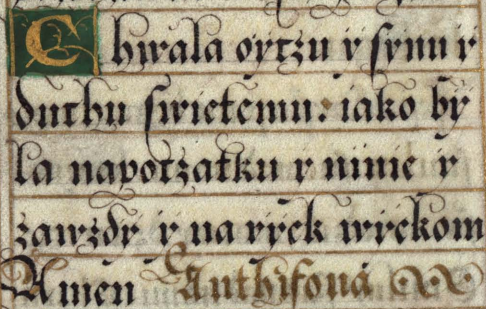 Chwala oytzu y synu y
duchu swietemu: iako by
la napotzatku y ninie y
zawzdy y na wyek wyekom
Amen Anthifona